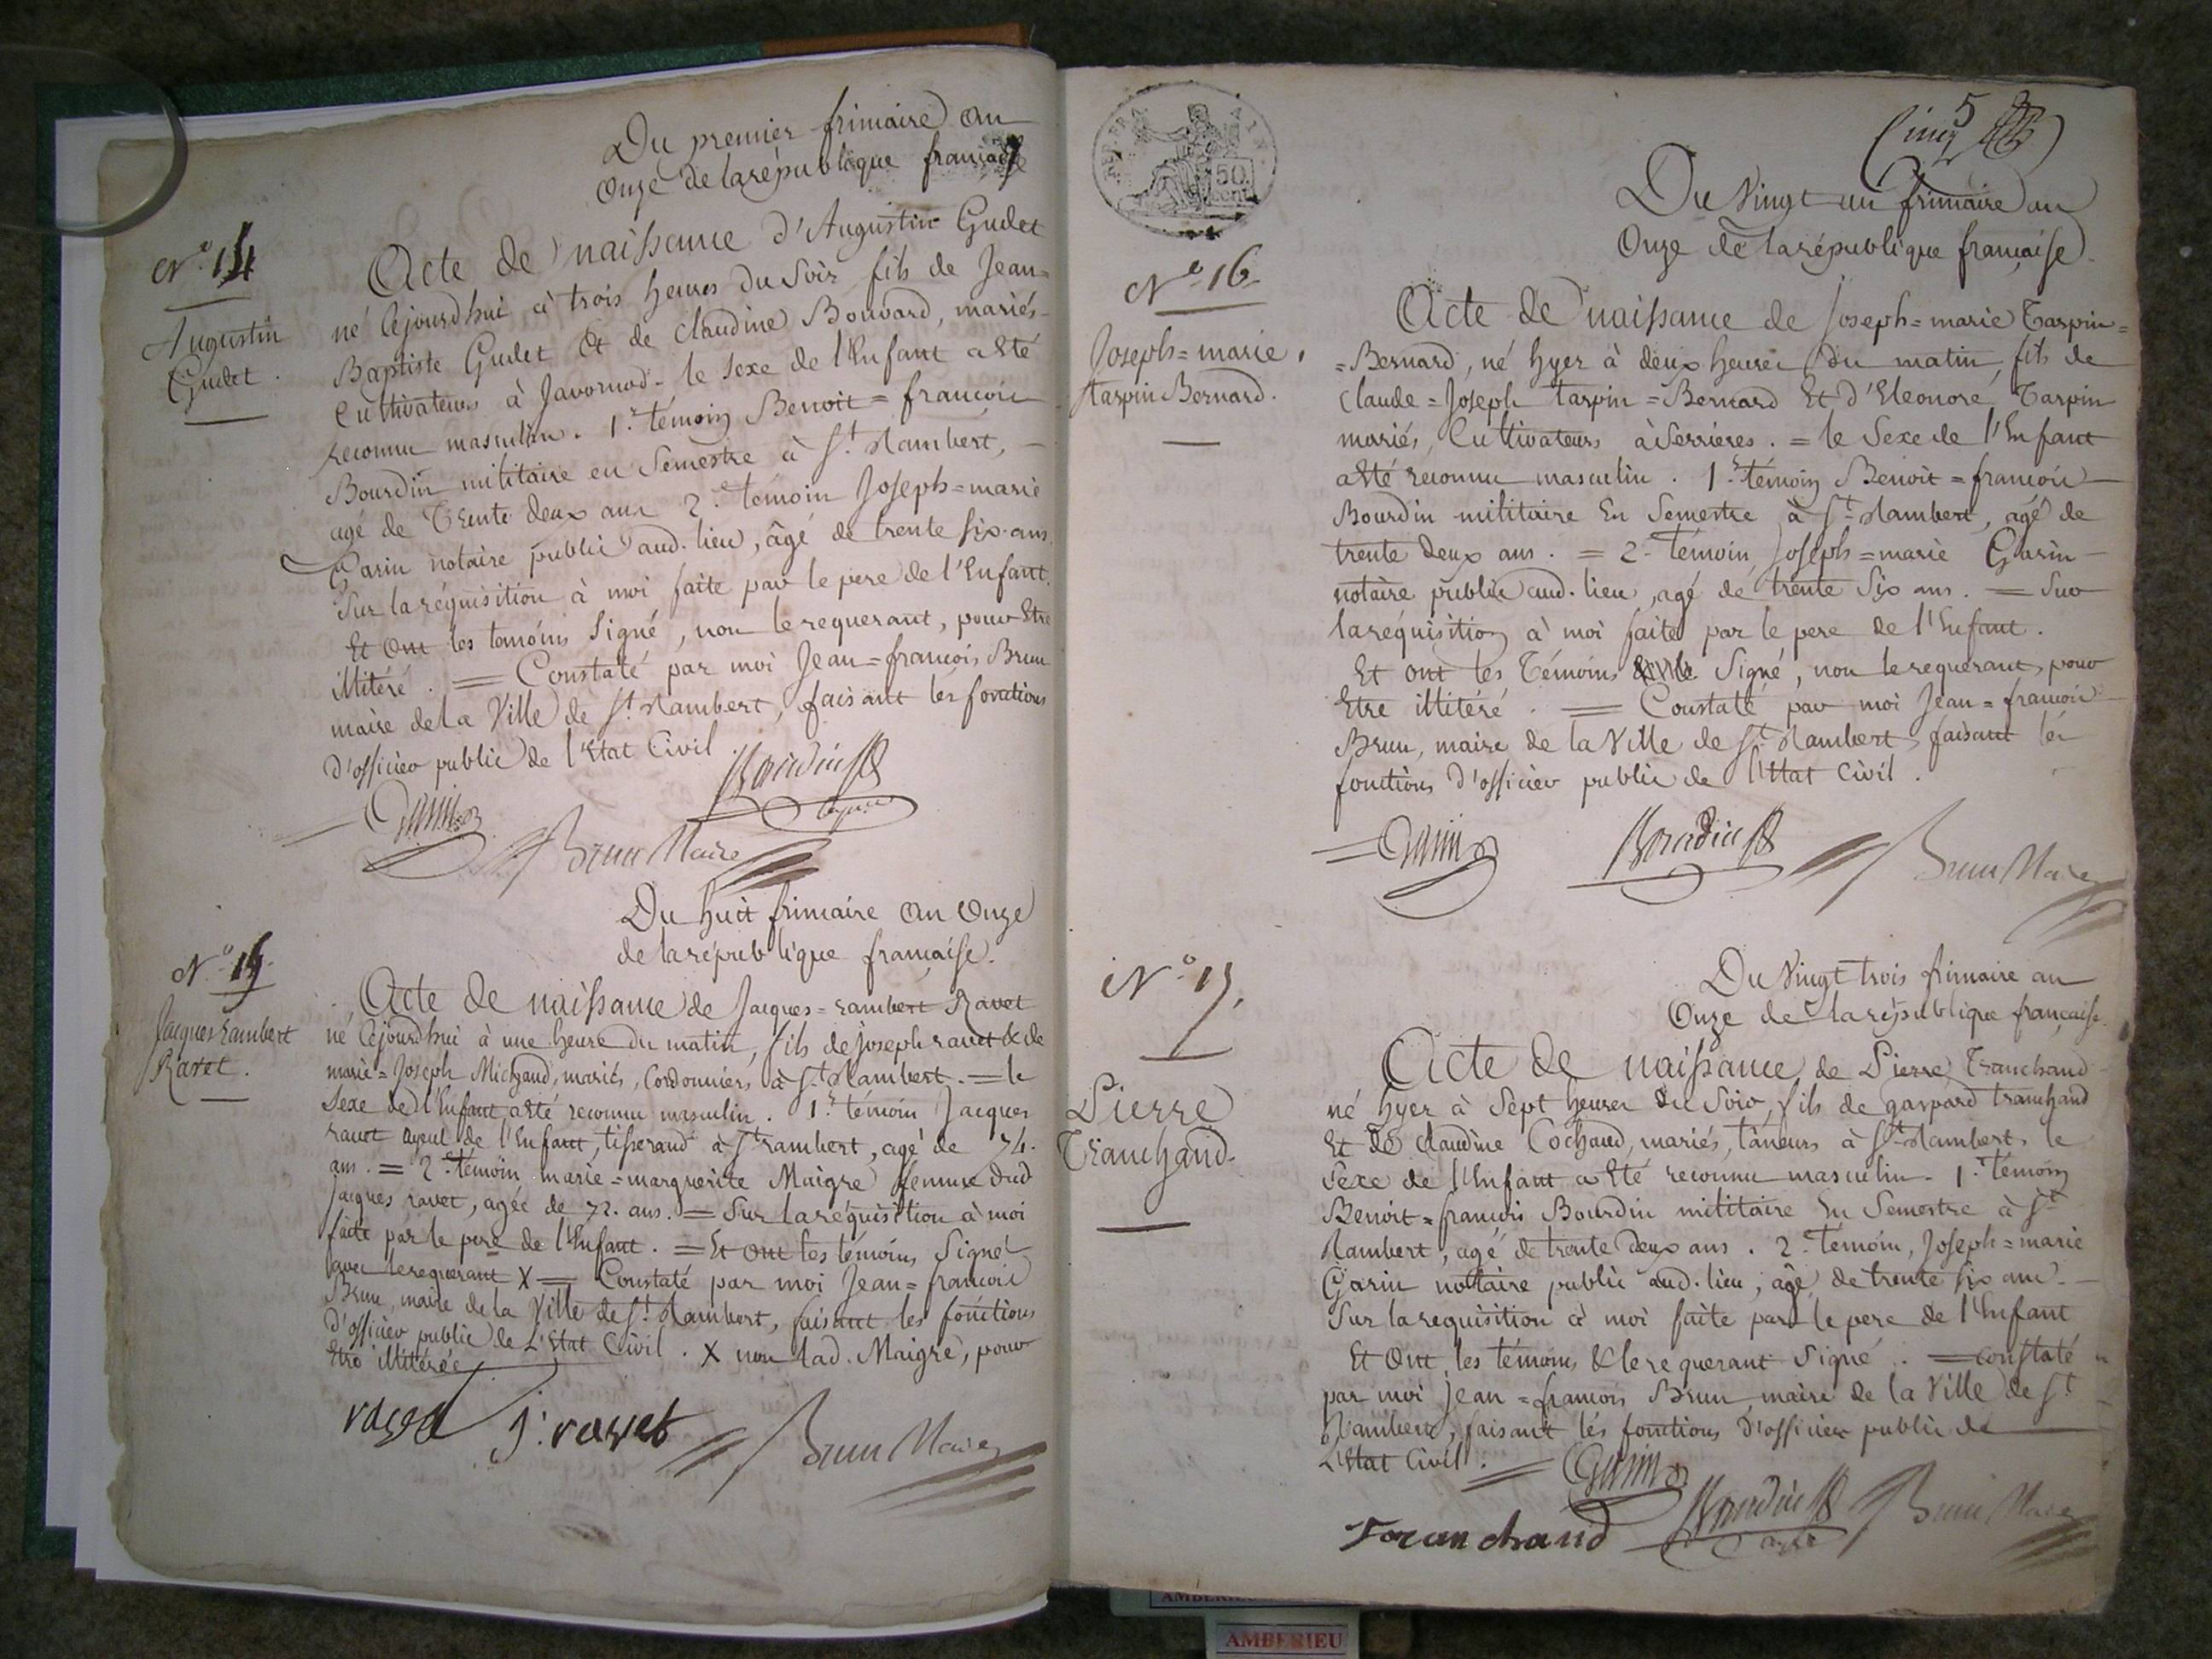 Du premier frimaire an
Onze de la république française
N.º 14
Augustin
Gudet.
Acte de naissance d'Augustin Gudet
né cejourdhui à trois heures du Soir fils de Jean=
Baptiste Gudet et de claudine Bouvard, mariés
Cultivateurs à Javornod. le Sexe de l'Enfant a Eté
reconnu masculin. 1.r témoin Benoit=francois
Bourdin militaire en Semestre à St. Rambert,
agé de Trente deux ans 2.e témoin Joseph=marie
Garin notaire public aud. lieu, âgé de trente six ans.
Sur la réquisition à moi faite par le pere de l'Enfant.
Et Ont les temoins Signé, non le requerant, pour Etre
illitéré. = Constaté par moi Jean=francois Brun
maire de la Ville de St. Rambert, faisant les fonctions
d'officier public de l'Etat Civil.
Bourdin
Garin
Brun Maire
Du huit frimaire an Onze
de la république française.
N.º 15.
Jacques rambert
Ravet.
Acte de naissance de Jacques=rambert Ravet
né cejourdhui à une heure du matin, fils de joseph ravet & de
marie=Joseph Michaud, mariés, Cordonniers à St. Rambert. = le
Sexe de l'Enfant a été reconnu masculin. 1.r témoin Jacques
ravet ayeul de l'Enfant, tisserand à St rambert, agé de 74.
ans. = 2.e témoin marie=marguerite Maigre femme dud
jacques ravet, agée de 72. ans. = Sur la réquisition à moi
faite par le pere de l'Enfant. = Et ont les témoins Signé
avec le requerant X = Constaté par moi Jean=francois
Brun, maire de la Ville de St. Rambert, faisant les fonctions
d'officier public de L'Etat Civil. X non lad. Maigre, pour
Etre illitérée
ravet J. ravet Brun Maire
REP. FRA
50
cent
5
Cinq
Du Vingt un frimaire an
Onze de la république française.
N.º 16
Joseph=marie,
tarpin Bernard.
Acte de naissance de Joseph=marie Tarpin=
=Bernard, né hyer à deux heures du matin, fils de
Claude=Joseph tarpin=Bernard Et d'Eleonore Tarpin
mariés, Cultivateurs à Serrieres. = le Sexe de l'Enfant
a Eté reconnu masculin. 1.r témoin Benoit=francois
Bourdin militaire En Semestre à St. Rambert, agé de
trente deux ans. = 2.e témoin, Joseph=marie Garin
notaire public aud. lieu, agé de trente Six ans. = Sur
la réquisition à moi faite par le pere de l'Enfant.
Et ont les Témoins Signé, non le requerant, pour
Etre illitéré. = Constaté par moi Jean=francois
Brun, maire de la Ville de St. Rambert, faisant les
fonctions d'officier public de l'Etat Civil.
Garin Bourdin Brun Maire
Du Vingt trois frimaire an
Onze de la république française.
N.º 17.
Pierre
Tranchand.
Acte de naissance de Pierre Tranchand
né hyer à Sept heures du Soir, fils de gaspard tranchand
Et de claudine Cochand, mariés, tâneurs à St. Rambert. le
Sexe de l'Enfant a Eté reconnu masculin. 1.r témoin
Benoit=francois Bourdin militaire En Semestre à St
Rambert, agé de trente deux ans. 2.e témoin, Joseph=marie
Garin nottaire public aud. lieu, âgé de trente six ans.
Sur la requisition à moi faite par le pere de l'Enfant
Et Ont les témoins & le requerant Signé. = constaté
par moi Jean=francois Brun maire de la Ville de St
Rambert, faisant les fonctions d'officier public de
L'Etat Civil.
Garin
Tranchand Bourdin Brun Maire
AMBERIEU
AMBERIEU